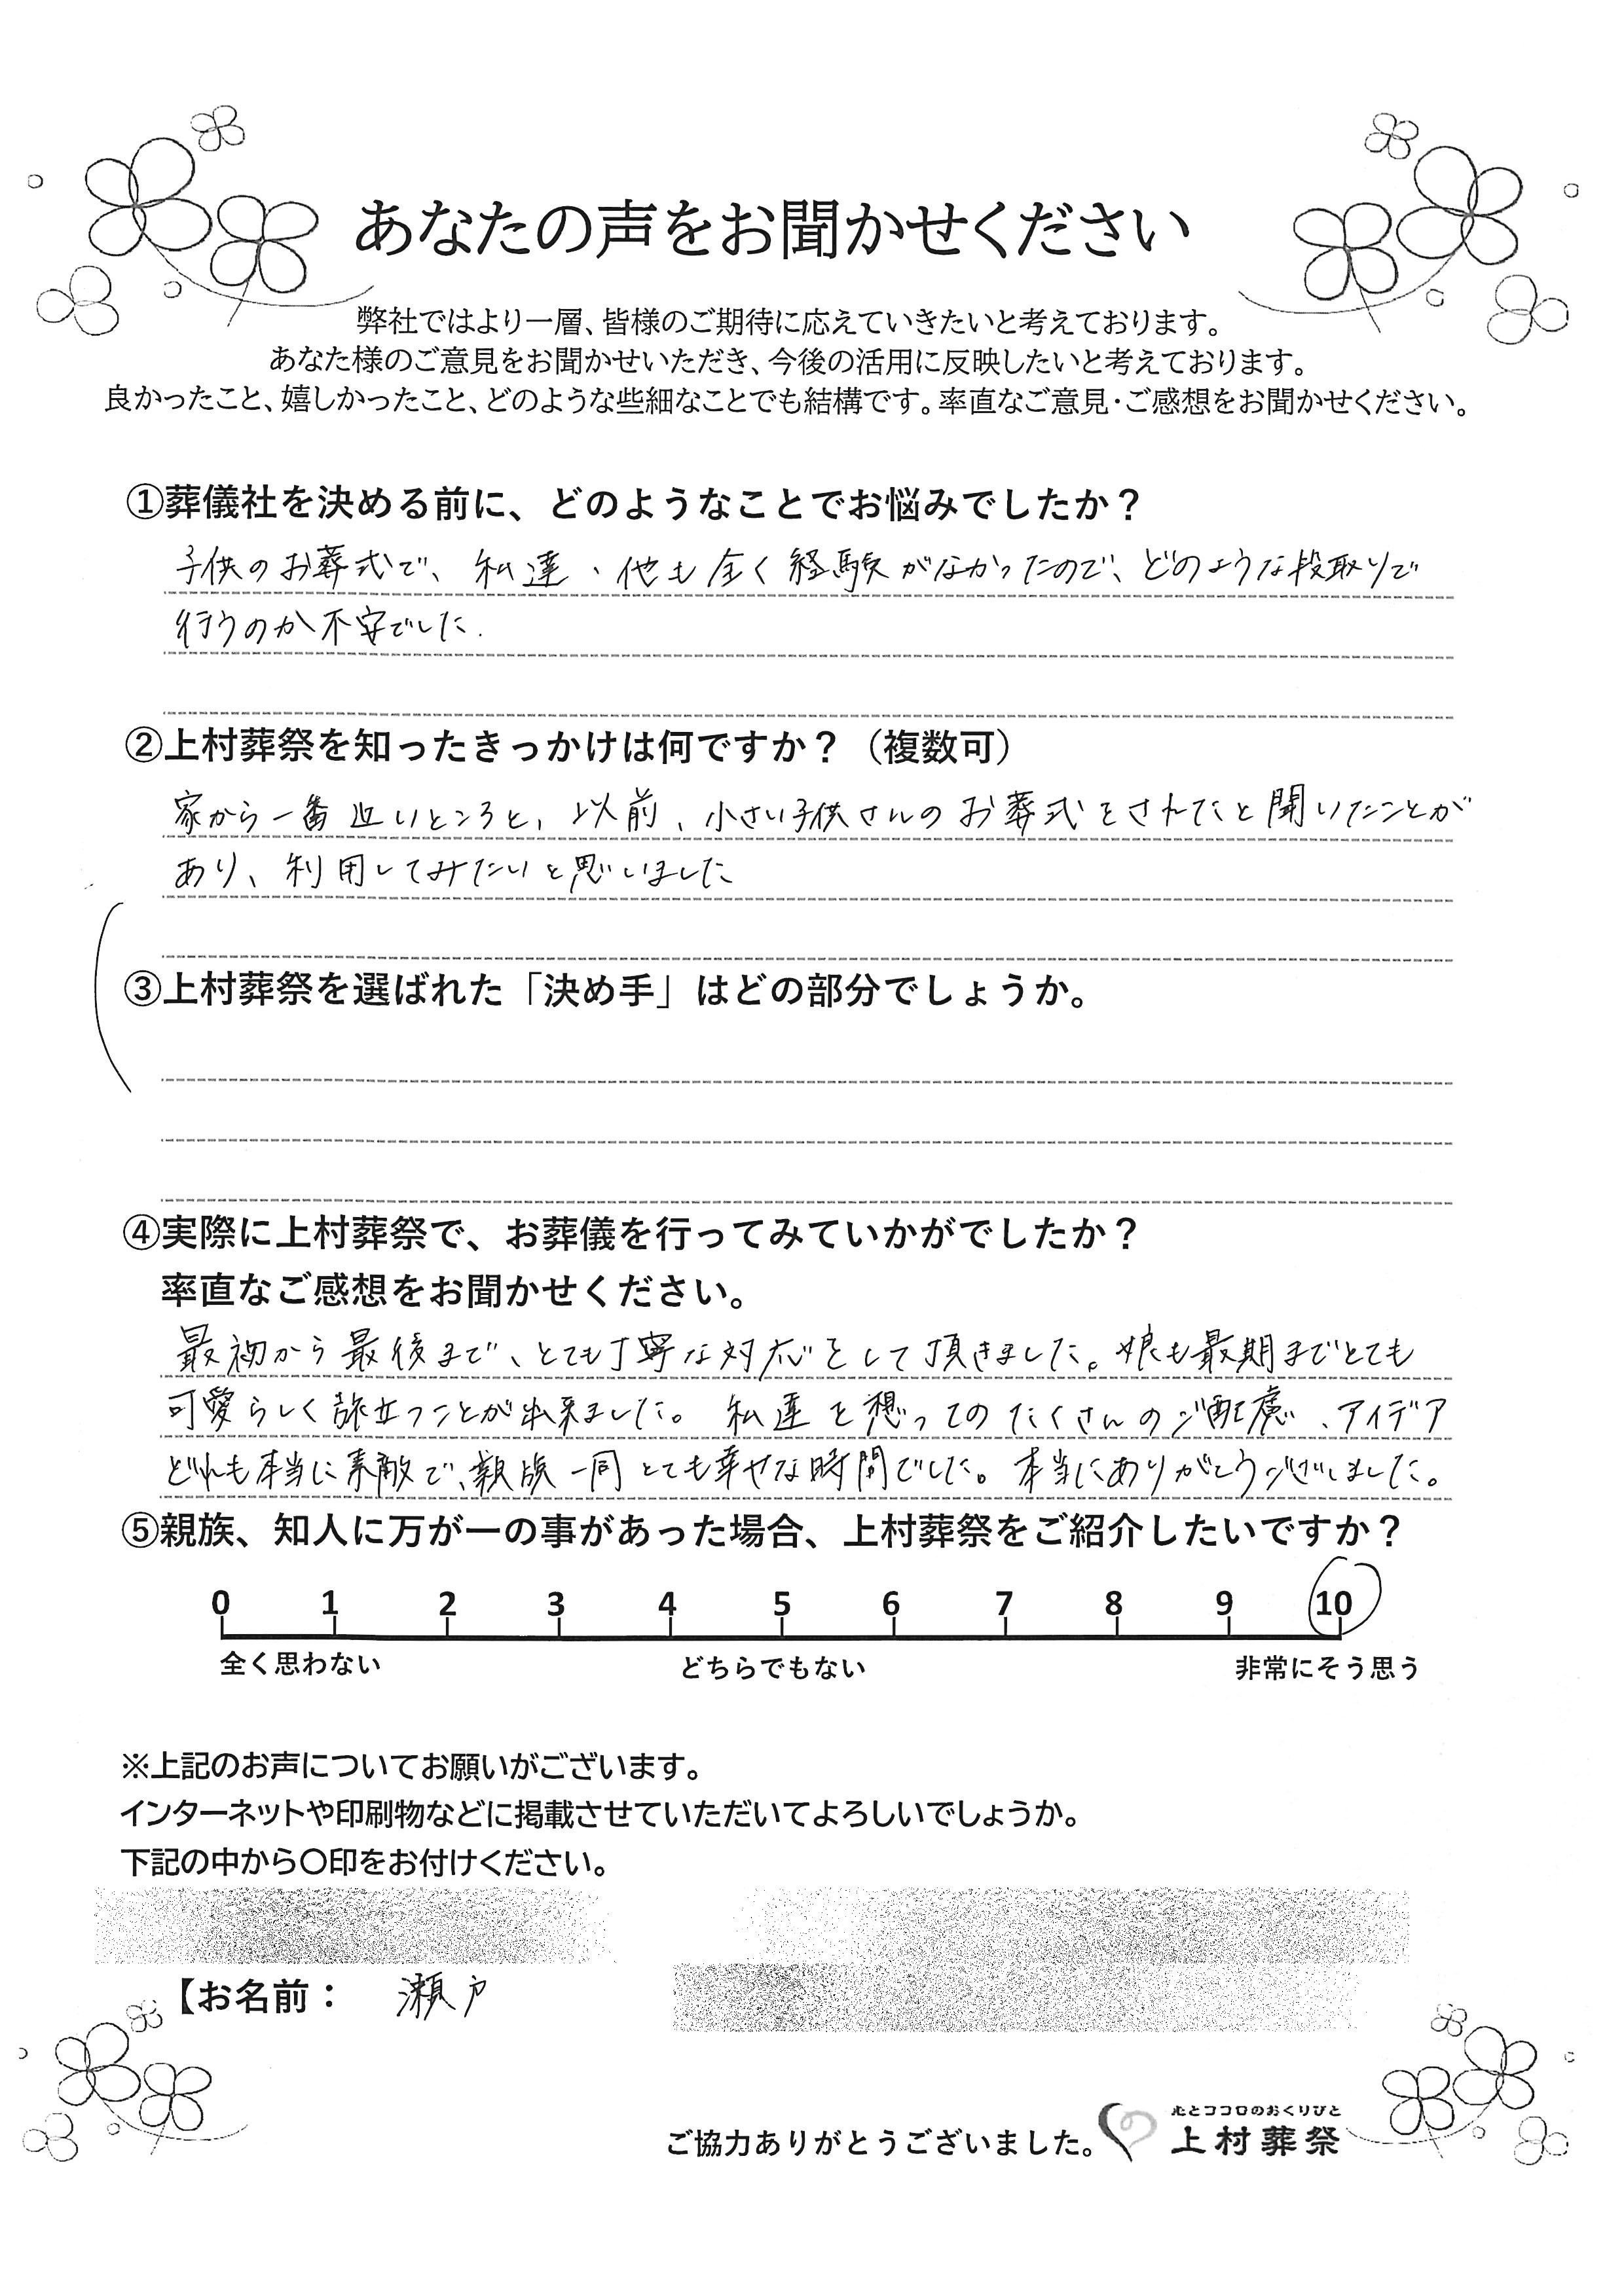 あなたの声をお聞かせください
弊社ではより一層、皆様のご期待に応えていきたいと考えております。
あなた様のご意見をお聞かせいただき、今後の活用に反映したいと考えております。
良かったこと、嬉しかったこと、どのような些細なことでも結構です。率直なご意見・ご感想をお聞かせください。
①葬儀社を決める前に、どのようなことでお悩みでしたか？
子供のお葬式で、私達・他も全く経験がなかったので、どのような段取りで
行うのか不安でした.
②上村葬祭を知ったきっかけは何ですか？（複数可）
家から一番近いところと、以前、小さい子供さんのお葬式をされたと聞いたことが
あり、利用してみたいと思いました
③上村葬祭を選ばれた「決め手」はどの部分でしょうか。
④実際に上村葬祭で、お葬儀を行ってみていかがでしたか？
率直なご感想をお聞かせください。
最初から最後まで、とても丁寧な対応をして頂きました。娘も最期までとても
可愛らしく旅立つことが出来ました。私達を想ってのたくさんのご配慮、アイデア
どれも本当に素敵で、親族一同とても幸せな時間でした。本当にありがとうございました。
⑤親族、知人に万が一の事があった場合、上村葬祭をご紹介したいですか？
0 1 2 3 4 5 6 7 8 9 10
全く思わない どちらでもない 非常にそう思う
※上記のお声についてお願いがございます。
インターネットや印刷物などに掲載させていただいてよろしいでしょうか。
下記の中から〇印をお付けください。
【お名前： 瀬戸
心とココロのおくりびと
ご協力ありがとうございました。 上村葬祭